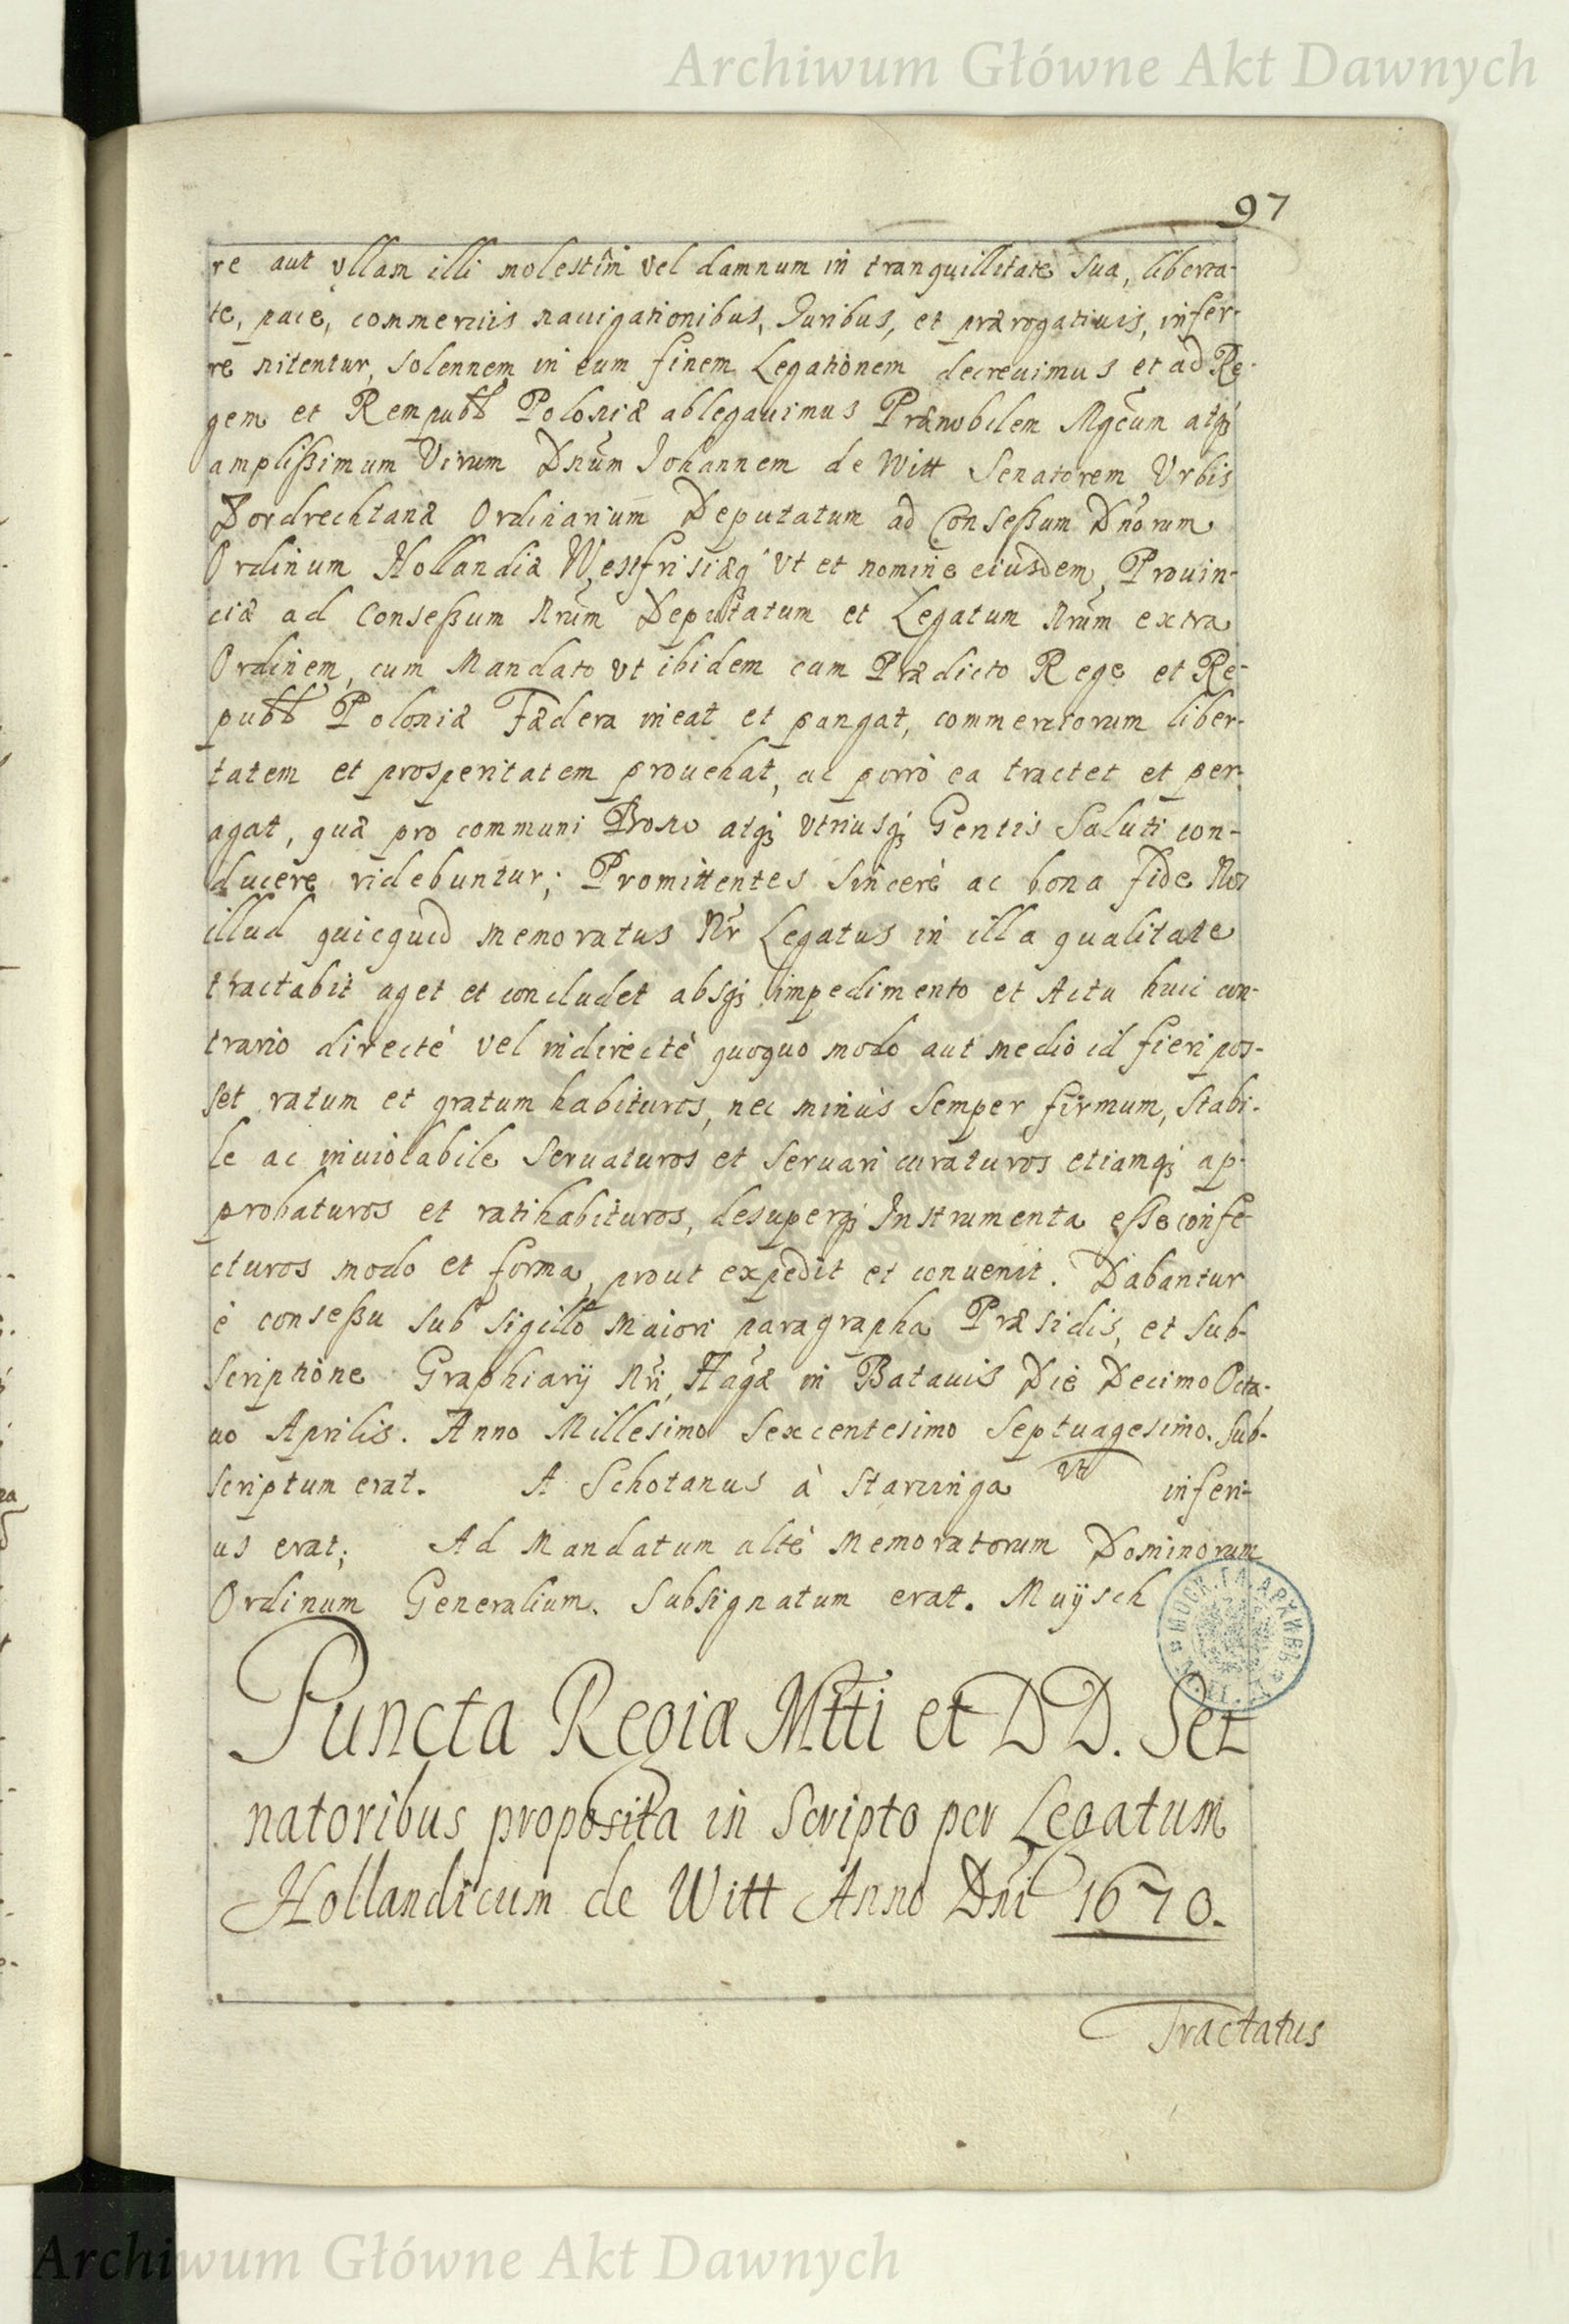 Archiwum Główne Akt Dawnych
97
re aut vllam illi molestĩm vel damnum in tranquillitate sua, liberta-
te, pace, commercijs nauigationibus, Iuribus, et prærogatiuis, infer-
re nitentur, solennem in eum finem Legationem decreuimus et ad Re-
gem et Rempubb Poloniæ ablegauimus Prænobilem Mgcum atq₃
amplißimum Virum Dnum Iohannem de Witt Senatorem Vrbis
Dordrechtanæ Ordinarium Deputatum ad Conseßum Dnorum
Ordinum Hollandiæ Westfrisiæq Vt et nomine eiusdem Prouin-
ciæ ad Conseßum Nrum Deputatum et Legatum Nrum extra
Ordinem, cum Mandato vt ibidem cum Prædicto Rege et Re-
pubb Poloniæ Fædera ineat et pangat, commerciorum liber-
tatem et prosperitatem prouehat, ac porrò ea tractet et per-
agat, quæ pro communi Bono atq₃ vtriusq₃ Gentis Saluti con-
ducere videbuntur; Promittentes sincerè ac bona fide Nos
illud quicquid memoratus Nr Legatus in illa qualitate
tractabit aget et concludet absq₃ impedimento et Actu huic con-
trario directè vel indirectè quoquo modo aut medio id fieri pos-
set ratum et gratum habituros, nec minùs semper firmum, stabi-
le ac inuiolabile seruaturos et seruari curaturos etiamq₃ ap-
probaturos et ratihabituros, desuperq₃ Instrumenta esse confe-
cturos modo et forma, prout expedit et conuenit. Dabantur
è conseßu sub sigillo maiori paragrapha Præsidis, et sub-
scriptione Graphiarij Nri, Hagæ in Batauis Die Decimo Octa-
uo Aprilis. Anno Millesimo Sexcentesimo Septuagesimo. Sub-
scriptum erat. A Schotanus à Starringa Vt inferi-
us erat; Ad Mandatum altè Memoratorum Dominorum
Ordinum Generalium. Subsignatum erat. Muijsch
Puncta Regiæ Mtti et DD. Se-
natoribus proposita in Scripto per Legatum
Hollandicum de Witt Anno Dni 1670.
Tractatus
Archiwum Główne Akt Dawnych